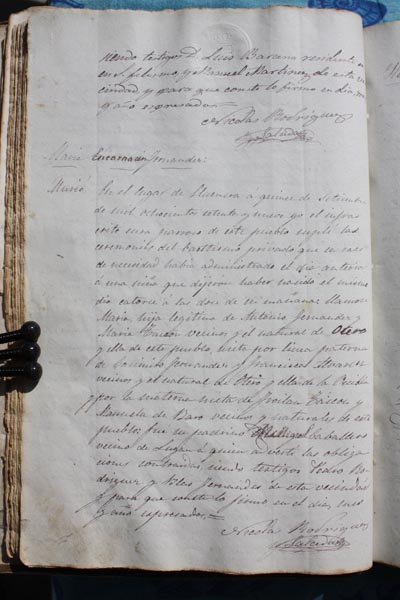 siendo testigos D. Luis Barcena residente en
en S. Filismo, y Manuel Martinez de esta ve
cindad y para que conste lo firmo en dia, mes
y año expresados =
Nicolas Rodriguez
Salcedo
Maria Encarnación Fernandez:
Murió
En el lugar de á quince de Setiembre
de mil ochocientos setenta y nueve yo el infras
crito cura parroco de este pueblo suplí las
ceremonias del bautismo privado que en caso
de necesidad habia administrado el dia anterior
a una niña que dijeron haber nacido el mismo
dia catorce á las doce de su mañana: llamose
Maria, hija legitima de Antonio Fernandez y
Maria vecinos y el natural de Otero
y ella de este pueblo, nieta por linea paterna
de Fernandez y Francisca Alvarez
vecinos y el natural de Otero y ella de la
y por la materna nieta de Froilan y
Manuela de Baro vecinos y naturales de este
pueblo: fue su padrino Miguel Caballero
vecino de Lugan á quien advertí las obliga
ciones contraidas siendo testigos Pedro Ro
driguez y Blas Fernandez de esta vecindad
y para que conste lo firmo en el dia, mes
y año expresados =
Nicolas Rodriguez
Salcedo